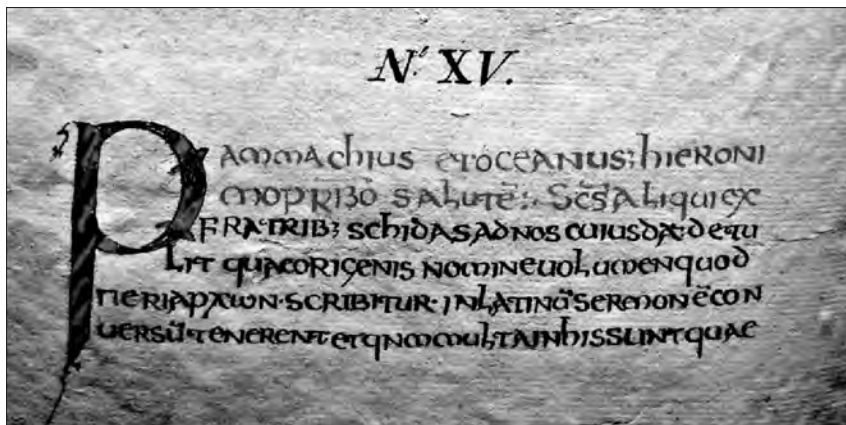 N.r XV.
Pammachius et oceanus; hieroni
mo p̄r̄ib̄ō salutē:. Sc̄s̄ aliqui ex
fratrib; schidas ad nos cuiusdā detu
lit quae origenis nomine uolumen quod
περιαρχων· scribitur· in latinū sermonē con
uersū· tenerent et qnm multa in his sunt quae